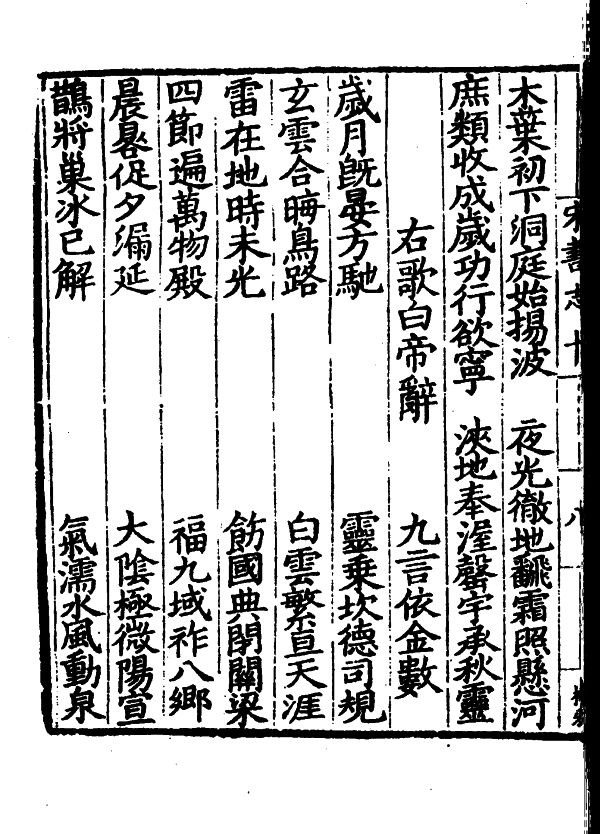 木葉初下洞庭始揚波　夜光徹地飜霜照懸河
庶類收成歲功行欲寧　浹地奉渥罄宇承秋靈
右歌白帝辭　九言依金數
歲月既晏方馳　靈乗坎德司規
玄雲合晦鳥路　白雲繁亘天涯
雷在地時未光　飭國典閉關梁
四節遍萬物殿　福九域祚八鄉
晨晷促夕漏延　大陰極微陽宣
鵲將巢冰已解　氣濡水風動泉
宋書志十　八